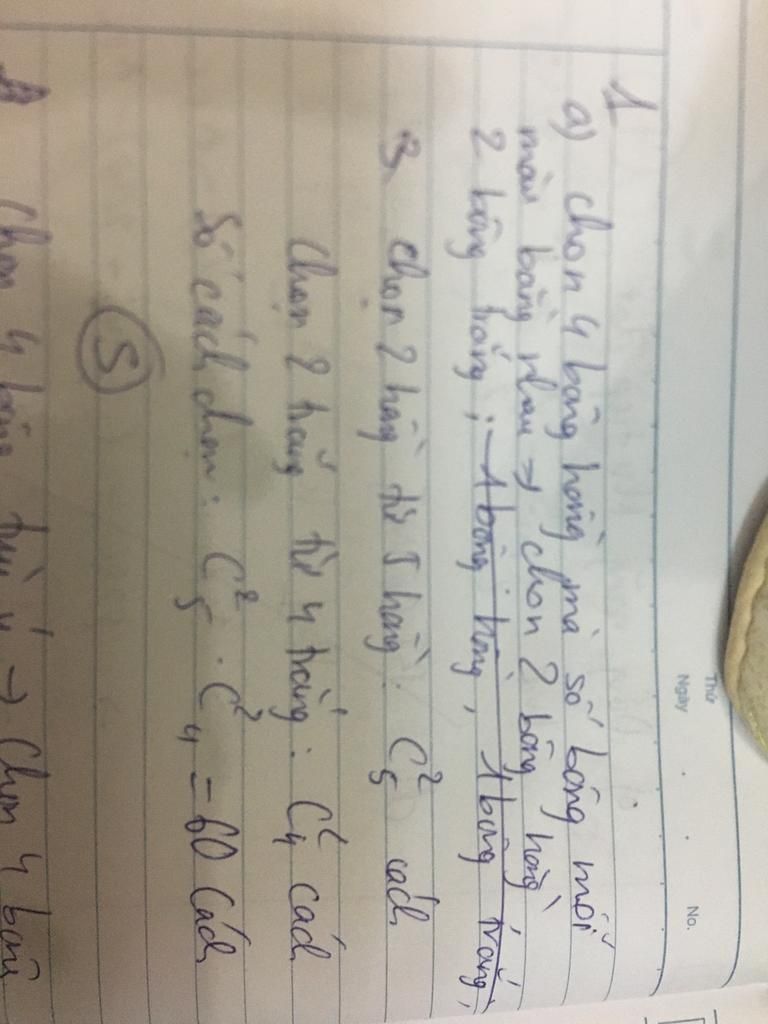 Thứ
Ngày
No.
1
a) chọn 4 bông hồng mà số bông mỗi
màu bằng nhau → chọn 2 bông hồng
2 bông trắng, 1 bông hồng, 1 bông trắng,
chọn 2 hồng từ 5 hồng: C²₅ cách
Chọn 2 trắng từ 4 trắng: C²₄ cách
Số cách chọn: C²₅ . C²₄ = 60 cách
(S)
Chọn 4 bông → Chọn 4 bông